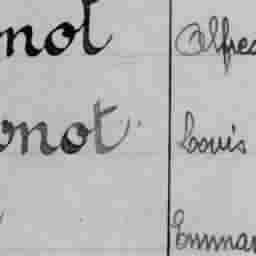 not Alfred
onot Louis
Emman